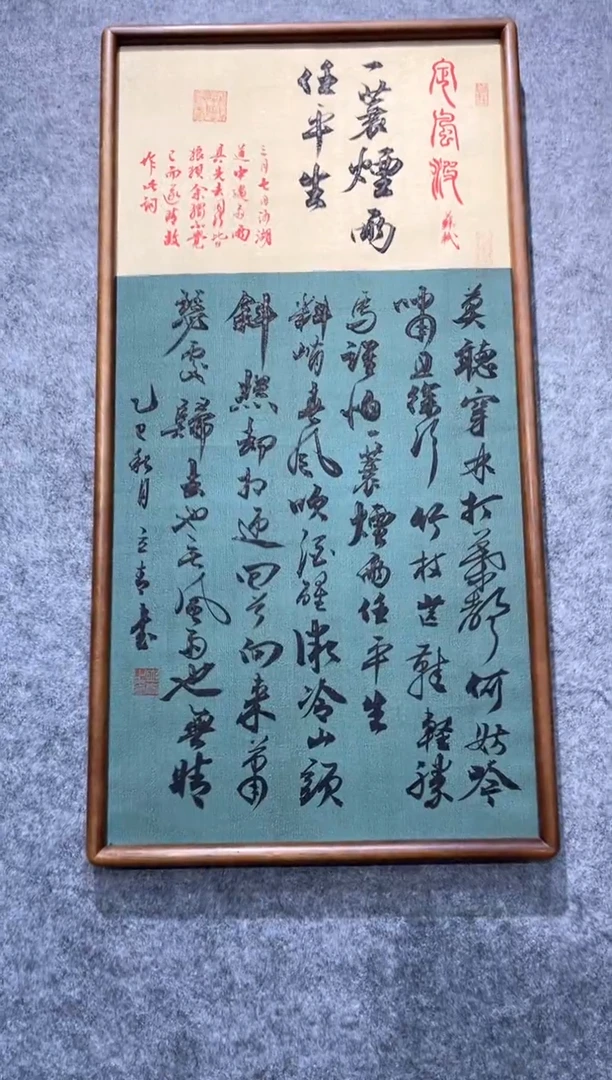 定風波
蘇軾
一蓑煙雨
任平生
三月七日沙湖
道中遇雨雨
具先去同行皆
狼狽余獨不覺
已而遂晴故
作此詞
莫聽穿林打葉聲何妨吟
嘯且徐行竹杖芒鞋輕勝
馬誰怕一蓑煙雨任平生
料峭春風吹酒醒微冷山頭
斜照卻相迎回首向來蕭
瑟處歸去也無風雨也無晴
乙巳秋月立青書